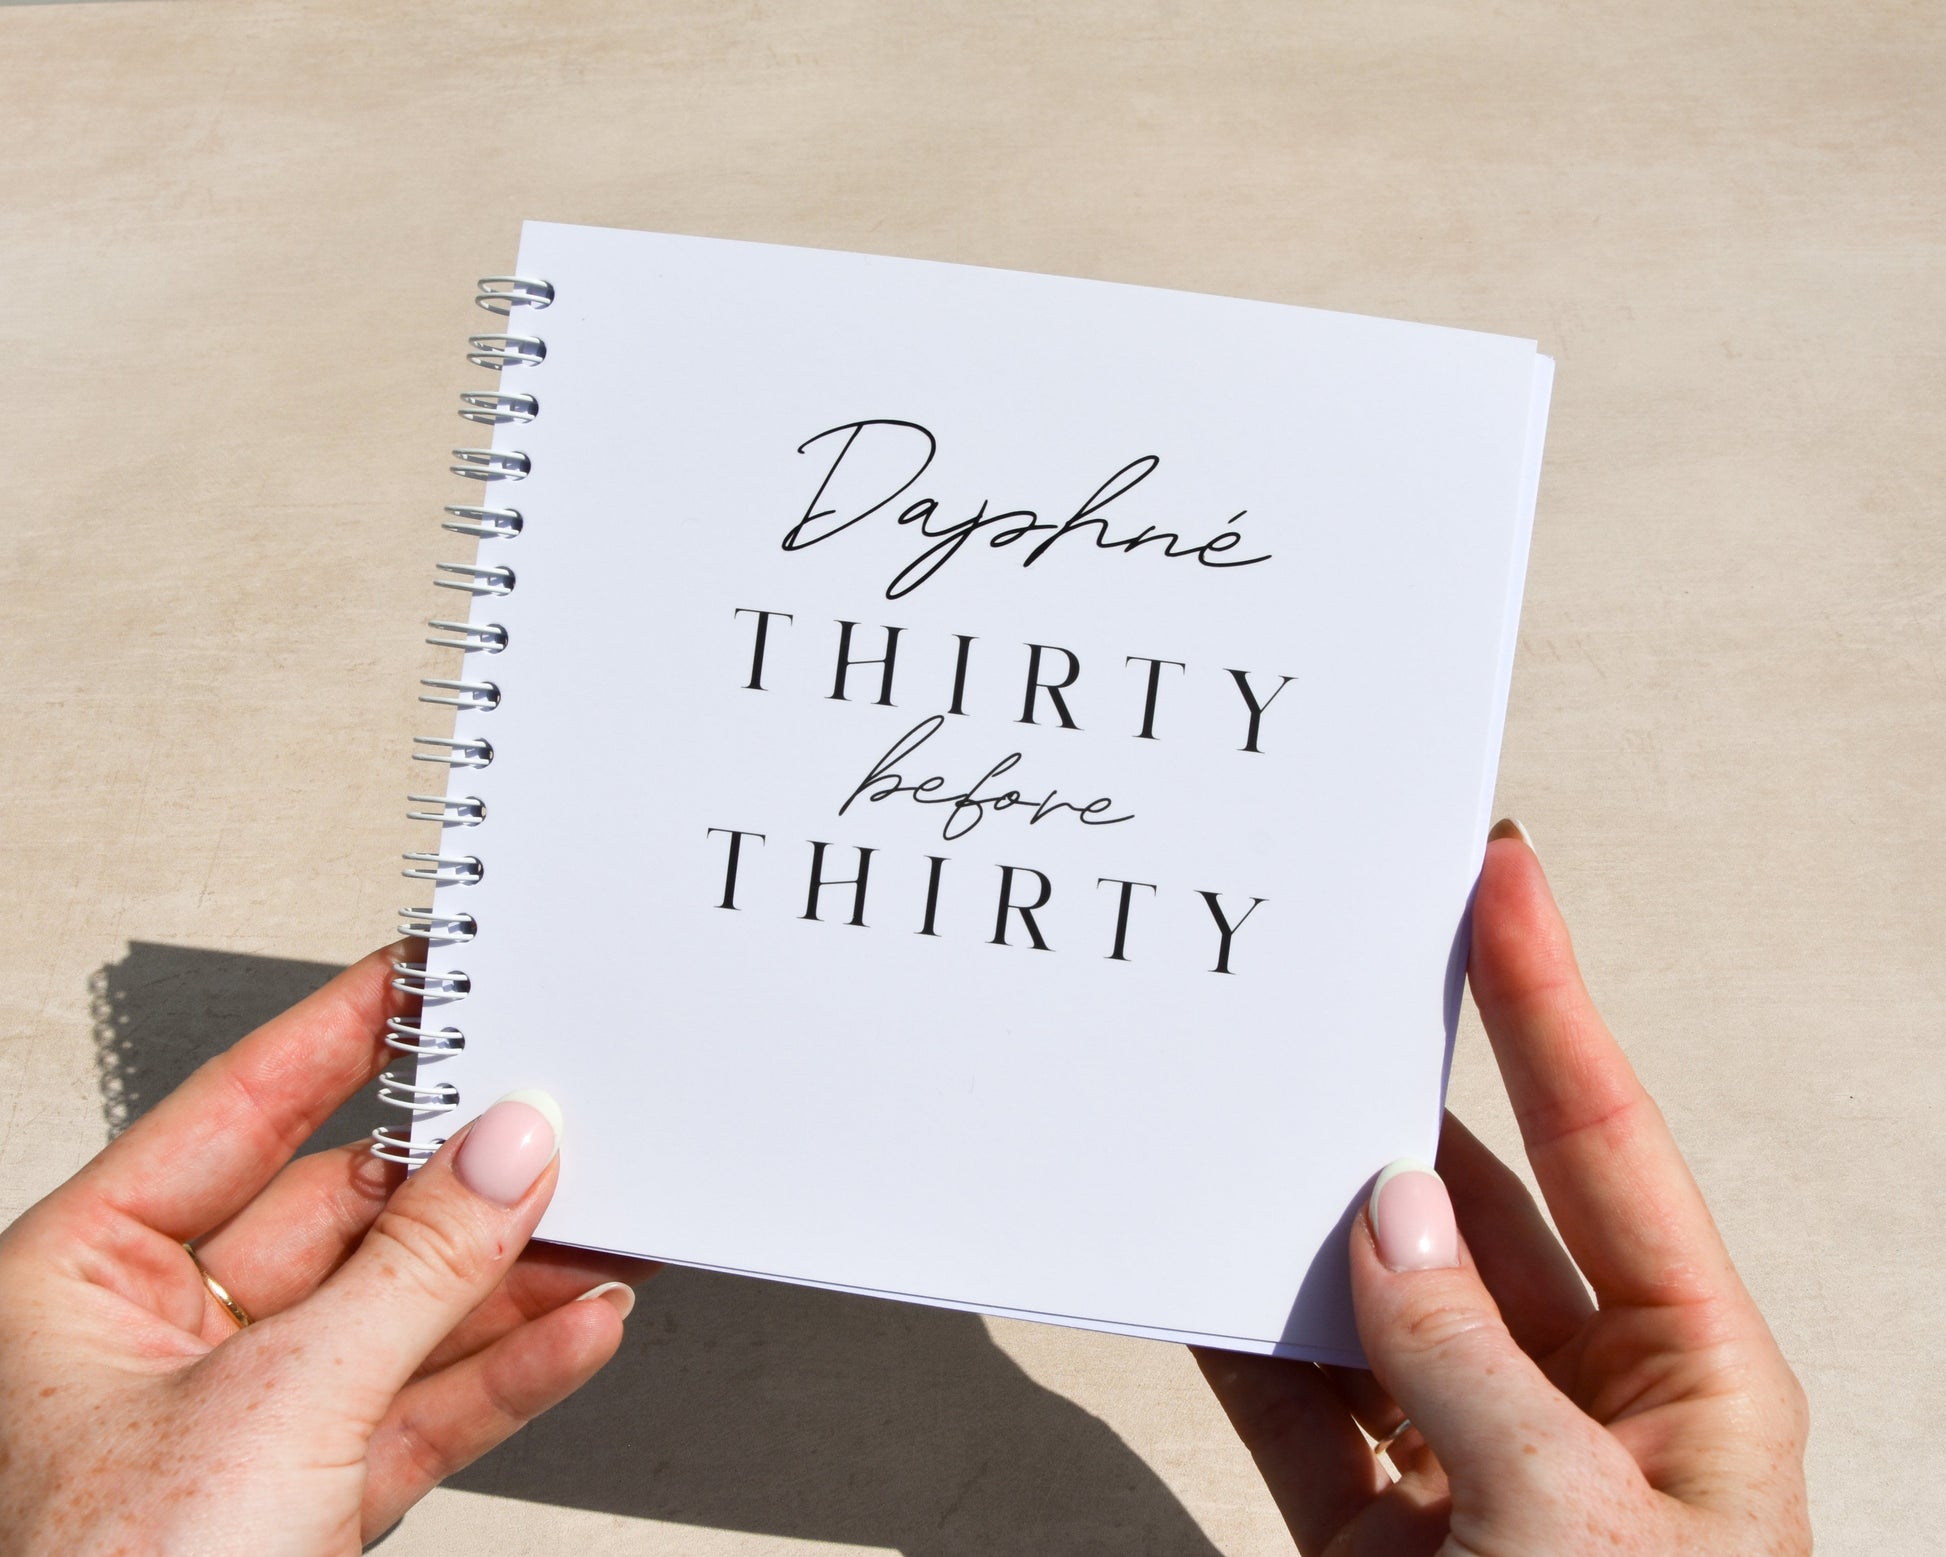 Daphné
THIRTY
before
THIRTY